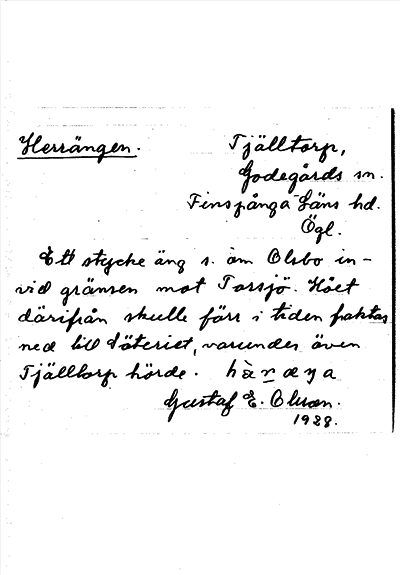 Herrängen.
Tjälltorp,
Godegårds sn.
Finspånga Läns hd.
Ögl.
Ett stycke äng s. om Olsbo in-
vid gränsen mot Torsjö. Höet
därifrån skulle förr i tiden fraktas
ned till Säteriet, varunder även
Tjälltorp hörde. hàræŋa
Gustaf E. Olsson.
1928.